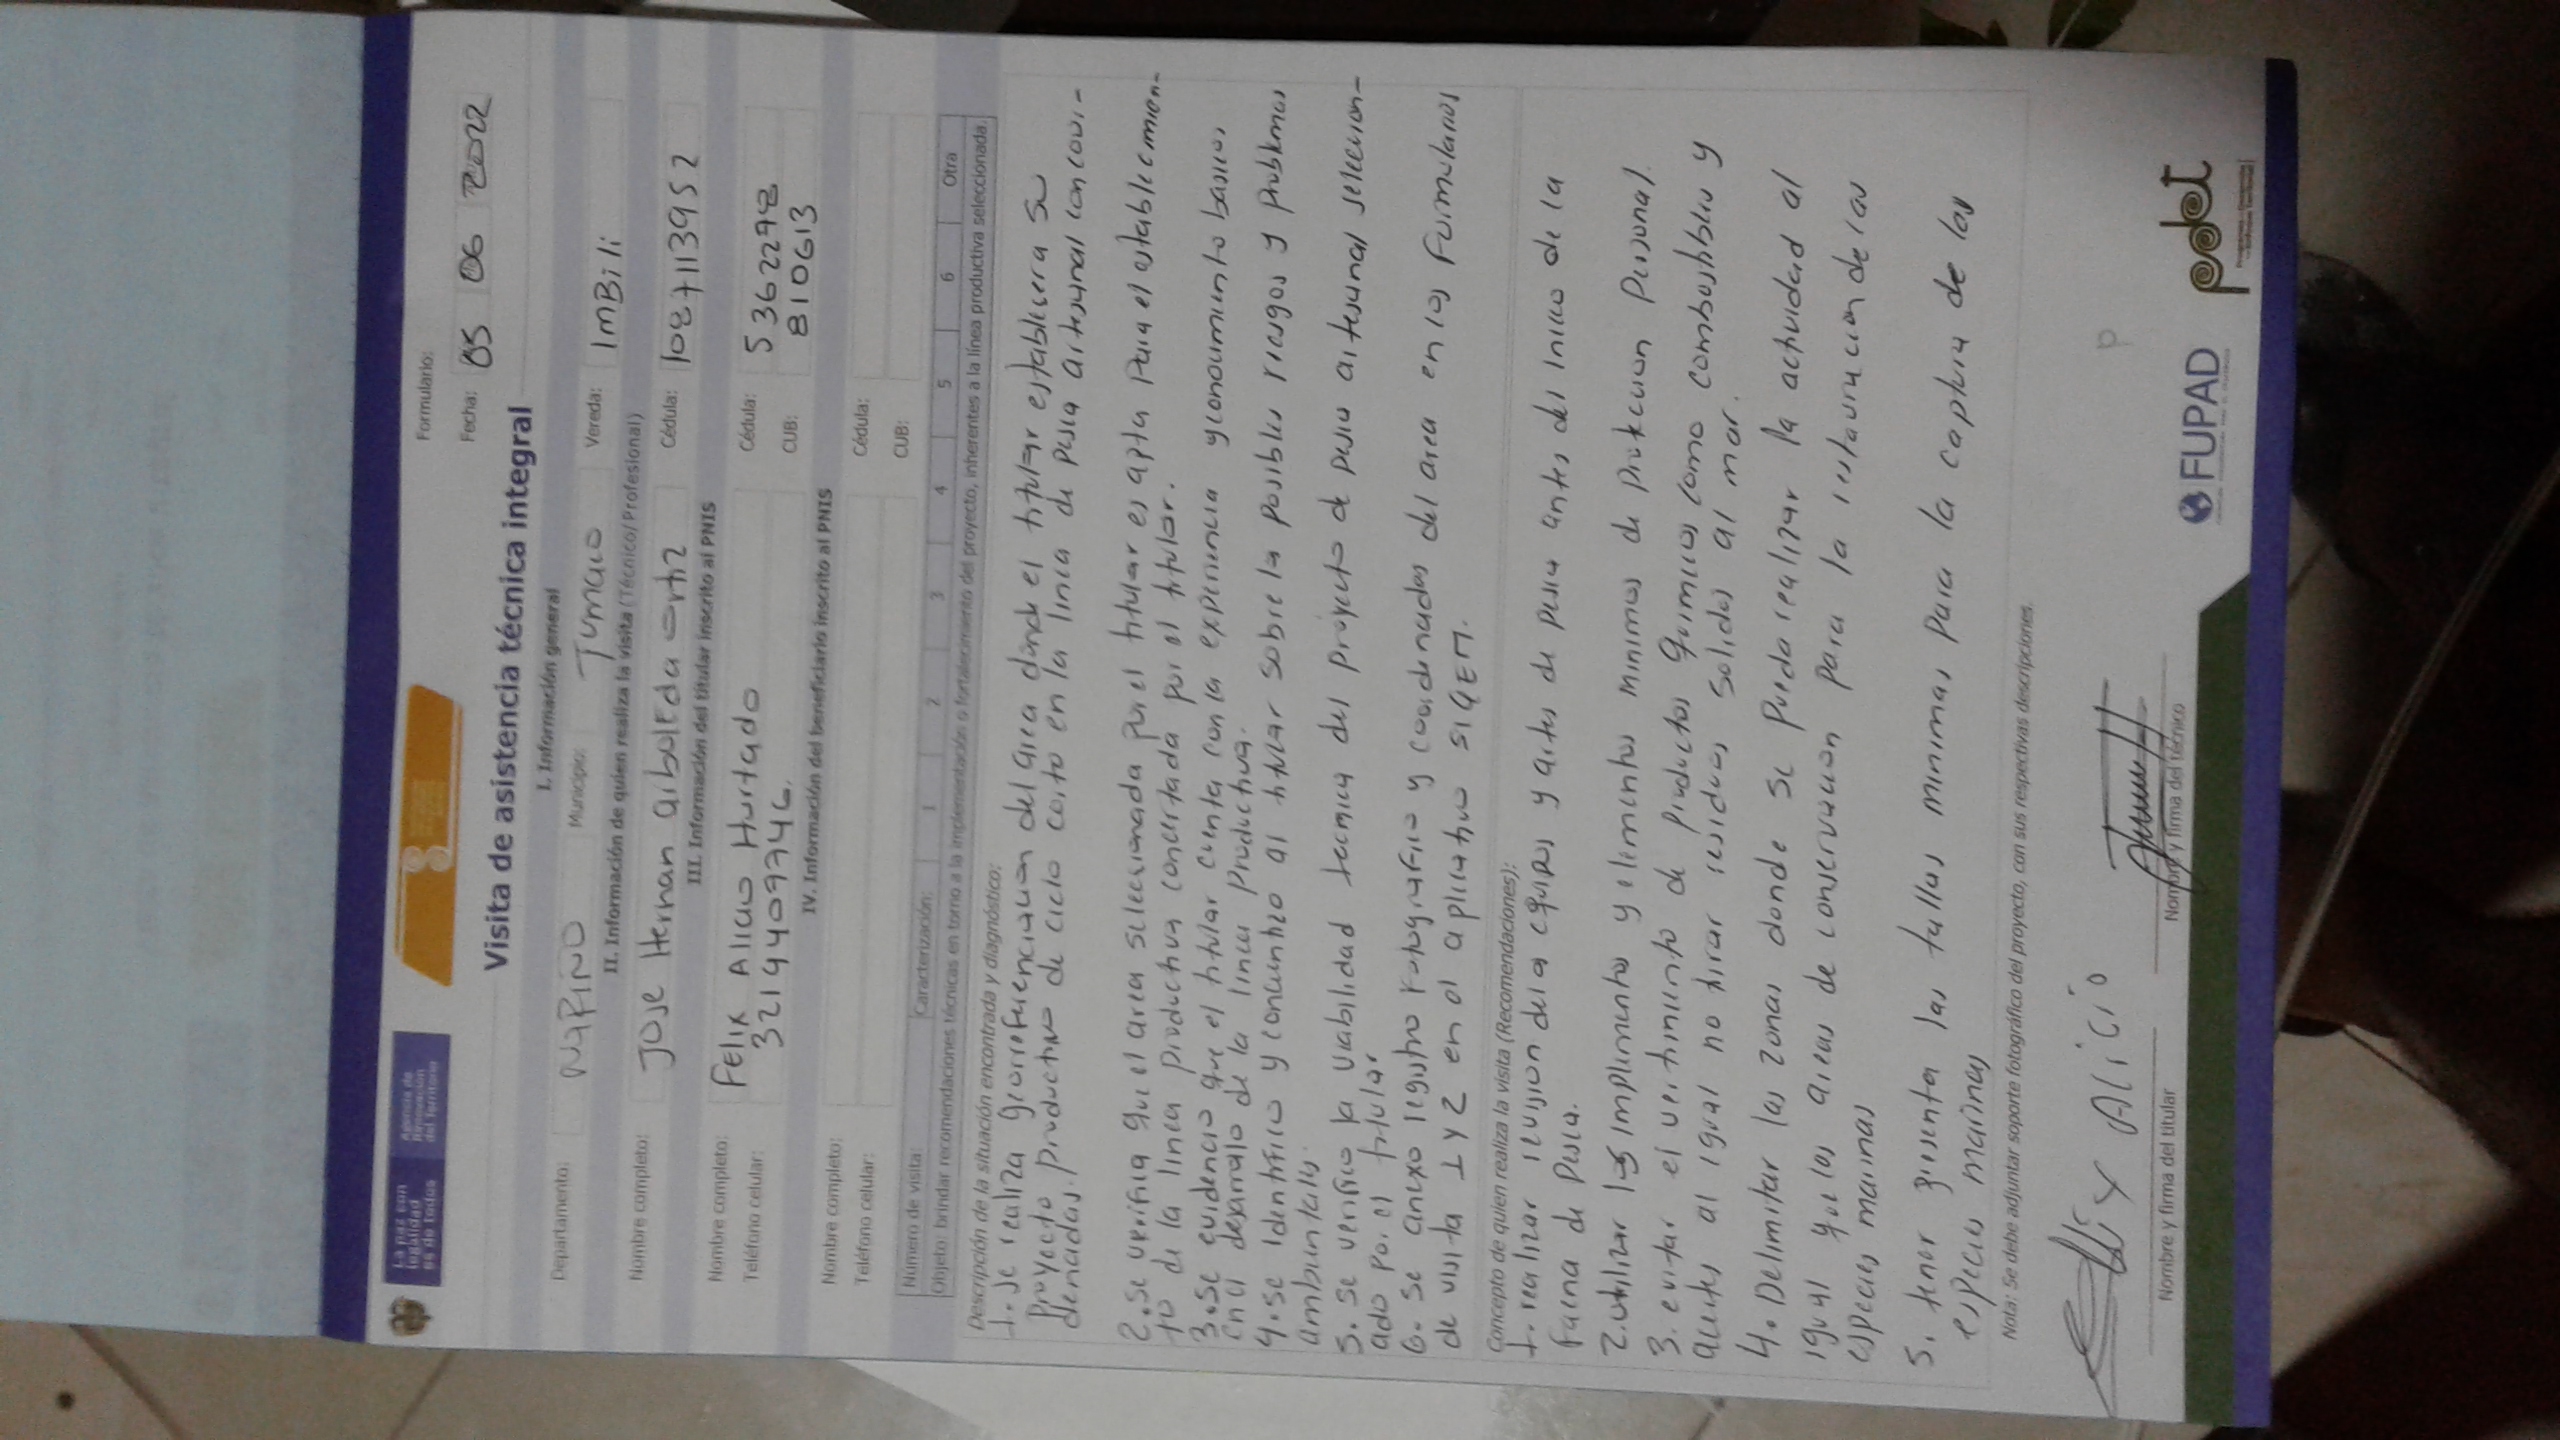 La paz con
legalidad
es de todos
Agencia de
Renovación
del Territorio
Formulario:
Fecha: 05 06 2022
Visita de asistencia técnica integral
I. Información general
Departamento: NARIÑO Municipio: Tumaco Vereda: ImBili
II. Información de quien realiza la visita (Técnico/ Profesional)
Nombre completo: JOSE Hernan arboleda ortiz Cédula: 1087113952
III. Información del titular inscrito al PNIS
Nombre completo: FELIX Alicio Hurtado Cédula: 5362278
Teléfono celular: 3219409746. CUB: 810613
IV. Información del beneficiario inscrito al PNIS
Nombre completo: Cédula:
Teléfono celular: CUB:
Número de visita: Caracterización: 1 2 3 4 5 6 Otra
Objeto: brindar recomendaciones técnicas en torno a la implementación o fortalecimiento del proyecto, inherentes a la línea productiva seleccionada.
Descripción de la situación encontrada y diagnóstico:
1. se realiza georreferenciacion del area donde el titular establecera su
Proyecto productivo de ciclo corto en la linea de pesca artesanal con coor-
denadas.
2. se verifica que el area seleccionada por el titular es apta para el establecimien-
to de la linea productiva concertada por el titular.
3. se evidencio que el titular cuenta con la experiencia y conocimiento basicos
en el desarrollo de la linea productiva.
4. se identifico y concientizo al titular sobre la posibles riesgos y problemas
ambientales.
5. se verifico la viabilidad tecnica del proyecto de pesca artesanal seleccion-
ado por el titular
6. se anexo registro fotografico y coordenadas del area en los formularios
de visita 1 y 2 en el aplicativo SIGEM.
Concepto de quien realiza la visita (Recomendaciones):
1. realizar revision de la equipos y artes de pesca antes del inicio de la
faena de pesca.
2. utilizar los implementos y elementos minimos de proteccion personal.
3. evitar el vertimiento de productos quimicos como combustibles y
aceites al igual no tirar residuos solidos al mar.
4. Delimitar las zonas donde se pueda realizar la actividad al
igual que las areas de conservacion para la restauracion de las
especies marinas
5. tener presenta las tallas minimas para la captura de las
especies marinas
Nota: Se debe adjuntar soporte fotográfico del proyecto, con sus respectivas descripciones.
Felix Alicio
Nombre y firma del titular Nombre y firma del técnico
FUPAD
pdet